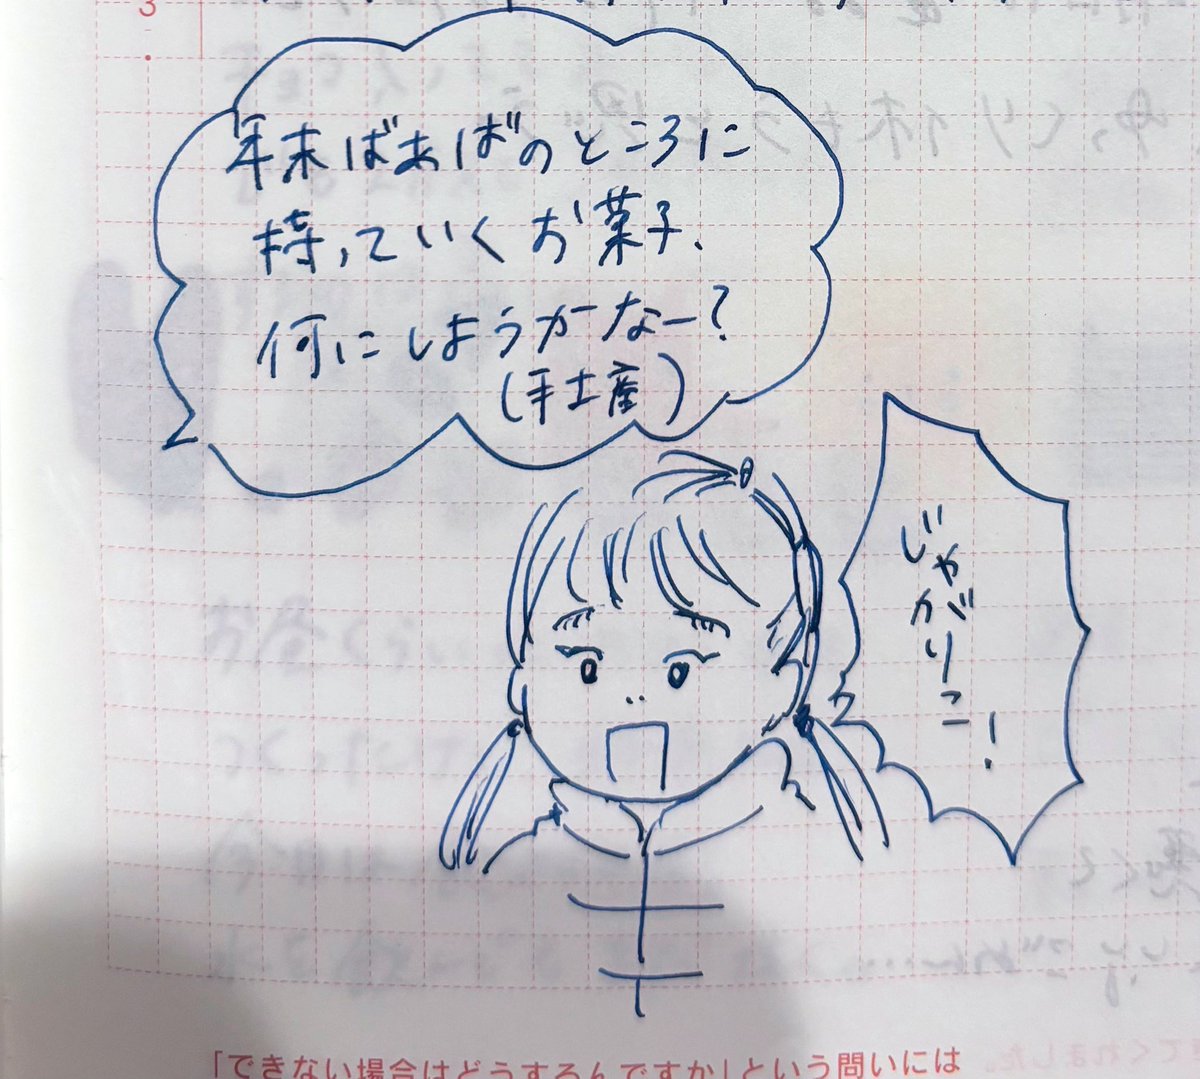 3
年末ばあばのところに
持っていくお菓子、
何にしようかーなー?
(手土産)
じゃがりこ!
「できない場合はどうするんですか」という問いには